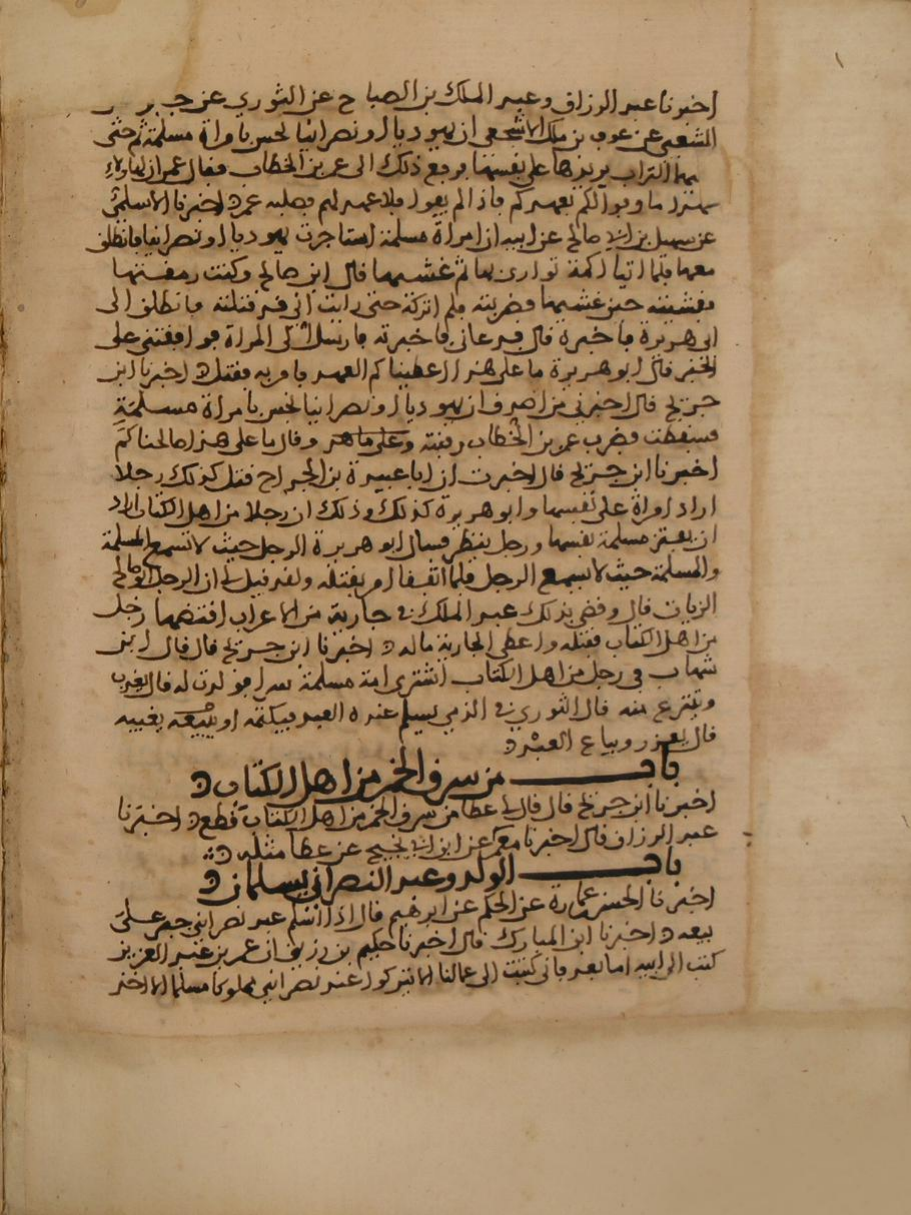 اخبرنا عبد الرزاق وعبد الملك بن الصباح عن الثوري عن جابر
الشعبي عن عوف بن ملك الاشجعي ان يهوديا او نصرانيا نخس بامراة مسلمة ثم حثى
عليها التراب يريدها على نفسها فرفع ذلك الى عمر بن الخطاب فقال عمر ان لهاولاء
عهدا ما وفوا لكم بعهدكم فاذا لم يفوا فلا عهد لهم فصلبه عمر اخبرنا الاسلمي
عن سهيل بن ابي صالح عن ابيه ان امراة مسلمة استاجرت يهوديا او نصرانيا فانطلق
معها فلما اتيا اكمة توارى بها ثم غشيها قال ابو صالح وكنت رمقتها
فغشيته حين غشيها فضربته فلم اتركه حتى رايت اني قد قتلته فانطلق الى
ابي هريرة فاخبره قال فدعاني فاخبرته فارسل الى المراة فوافقتني على
الخبر قال ابو هريرة ما على هذا اعطيناكم العهد فامر به فقتل اخبرنا ابن
جريج قال اخبرني من اصدق ان يهوديا او نصرانيا نخس بامراة مسلمة
فسقطت فضرب عمر بن الخطاب رقبته وقال ما على هذا صالحناكم
اخبرنا ابن جريج قال اخبرت ان ابا عبيدة بن الجراح قتل كذلك رجلا
اراد امراة على نفسها وابو هريرة كذلك وذلك ان رجلا من اهل الكتاب اراد
ان يبتز مسلمة نفسها ورجل ينظر فسال ابو هريرة الرجل حيث لا تسمع المسلمة
والمسلمة حيث لا يسمع الرجل فلما اتفقا امر بقتله ولقد قيل لي ان الرجل ابو صالح
الزيات قال وقضى بذلك عبد الملك في جارية من الاعراب افتضها رجل
من اهل الكتاب فقتله واعطى الجارية ماله اخبرنا ابن جريج قال قال ابن
شهاب في رجل من اهل الكتاب اشترى امة مسلمة سرا فولدت له قال يعذب
وتنتزع منه قال الثوري في الذمي يسلم عنده العبد فيكتمه او يغيبه
قال يعزر ويباع العبد
باب من سرق الخمر من اهل الكتاب
اخبرنا ابن جريج قال قال لي عطا من سرق الخمر من اهل الكتاب قطع اخبرنا
عبد الرزاق قال اخبرنا معمر عن ابن ابي نجيح عن عطا مثله
باب الولد وعبد النصراني يسلمان
اخبرنا الحسن بن عمارة عن الحكم عن ابرهيم قال اذا اسلم عبد نصراني جبر على
بيعه اخبرنا ابن المبارك قال اخبرنا حكيم بن رزيق ان عمر بن عبد العزيز
كتب الى ابيه اما بعد فاني كتبت الى عمالنا الا يتركوا عند نصراني مملوكا مسلما الا اخذ